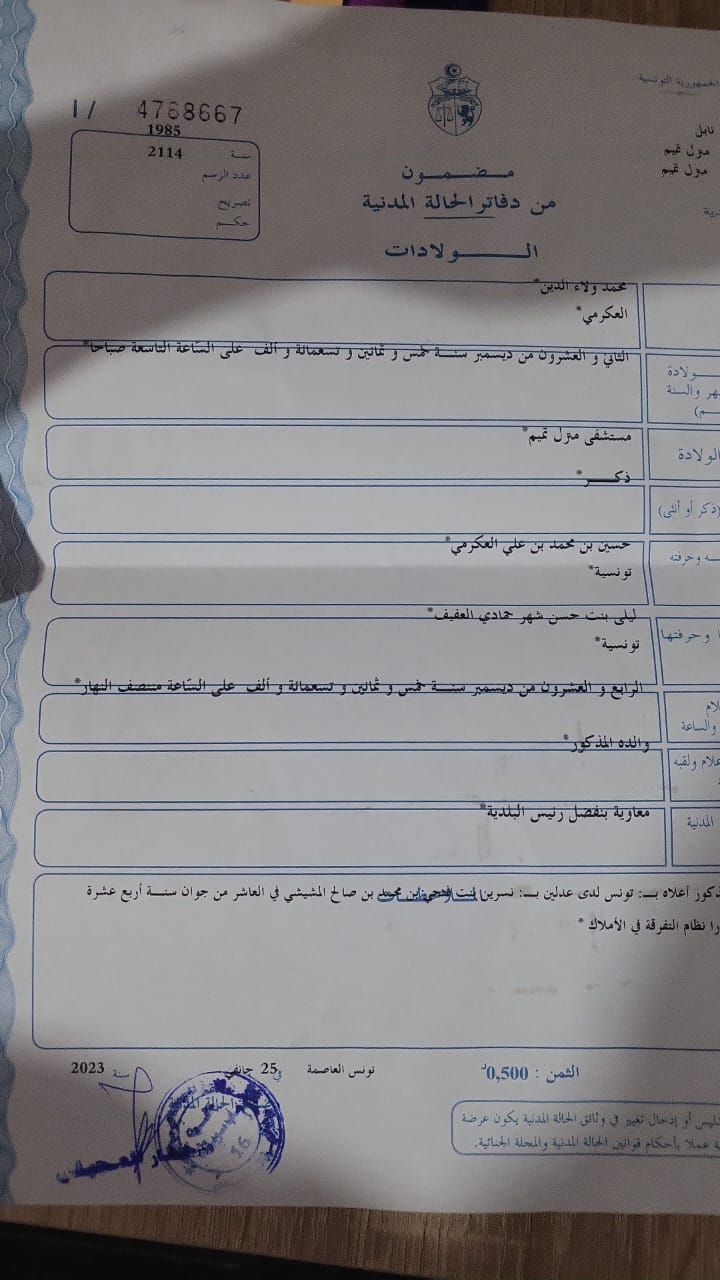 الجمهورية التونسية
I / 4768667
نابل
منزل تميم
منزل تميم
1985
سنة
2114
عدد الرسم
تصريح
حكم
مضمون
من دفاتر الحالة المدنية
الولادات
محمد ولاء الدين*
العكرمي*
الثاني و العشرون من ديسمبر سنة خمس و ثمانين و تسعمائة و ألف على السّاعة التاسعة صباحا*
ـولادة
ـهر والسنة
مستشفى منزل تميم*
الولادة
ذكر*
(ذكر أو أنثى)
حسين بن محمد بن علي العكرمي*
ـه وحرفته
تونسية*
ليلى بنت حسن شهر حمادي العفيف*
ـا وحرفتها
تونسية*
الرابع و العشرون من ديسمبر سنة خمس و ثمانين و تسعمائة و ألف على السّاعة منتصف النهار*
ـلام
والساعة
والده المذكور*
ـعلام ولقبه
معاوية بنفضل رئيس البلدية*
المدنية
ـذكور أعلاه بـ: تونس لدى عدلين بـ: نسرين بنت فتحي بن محمد بن صالح المشيشي في العاشر من جوان سنة أربع عشرة
ـرا نظام التفرقة في الأملاك *
الثمن : 0,500د
تونس العاصمة في 25 جانفي سنة 2023
ـليس أو إدخال تغيير في وثائق الحالة المدنية يكون عرضة
ـة عملا بأحكام قوانين الحالة المدنية والمجلة الجنائية.
الحالة المدنية
16